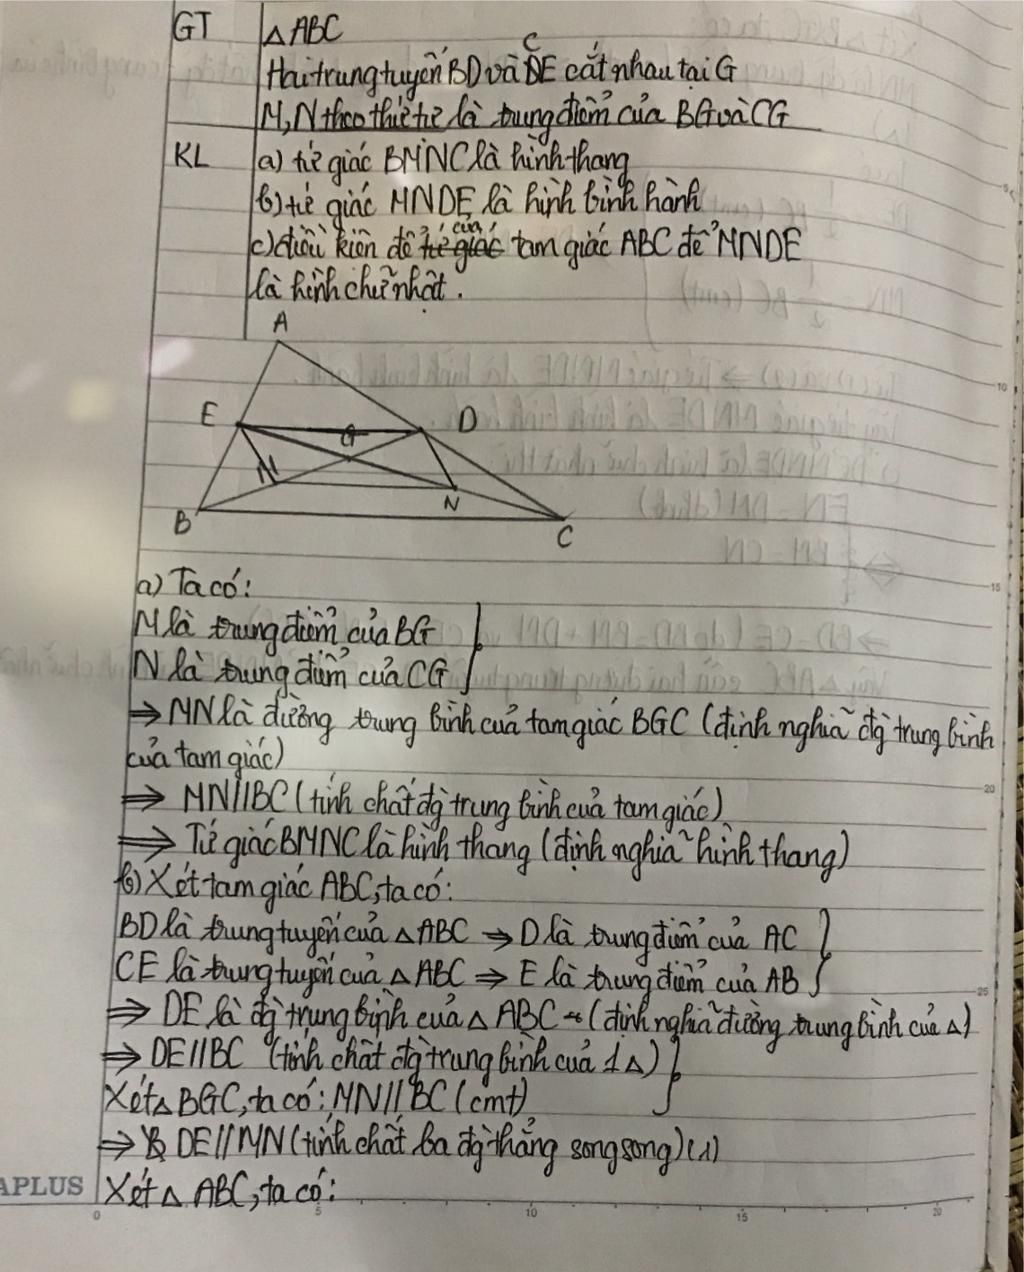 GT △ABC
Hai trung tuyến BD và CE cắt nhau tại G
M, N theo thứ tự là trung điểm của BG và CG
KL a) tứ giác BMNC là hình thang
b) tứ giác MNDE là hình bình hành
c) điều kiện để tứ giác của tam giác ABC để MNDE
là hình chữ nhật.
A
E
D
G
M
N
B
C
a) Ta có:
M là trung điểm của BG
N là trung điểm của CG
⇒ MN là đường trung bình của tam giác BGC (định nghĩa đg trung bình
của tam giác)
⇒ MN//BC (tính chất đg trung bình của tam giác)
⇒ Tứ giác BMNC là hình thang (định nghĩa hình thang)
b) Xét tam giác ABC, ta có:
BD là trung tuyến của △ABC ⇒ D là trung điểm của AC
CE là trung tuyến của △ABC ⇒ E là trung điểm của AB
⇒ DE là đg trung bình của △ABC (định nghĩa đường trung bình của △)
⇒ DE//BC (tính chất đg trung bình của 1△)
Xét △BGC, ta có: MN//BC (cmt)
⇒ DE//MN (tính chất ba đg thẳng song song) (1)
APLUS Xét △ABC, ta có:
0 5 10 15 20
5
10
15
20
25